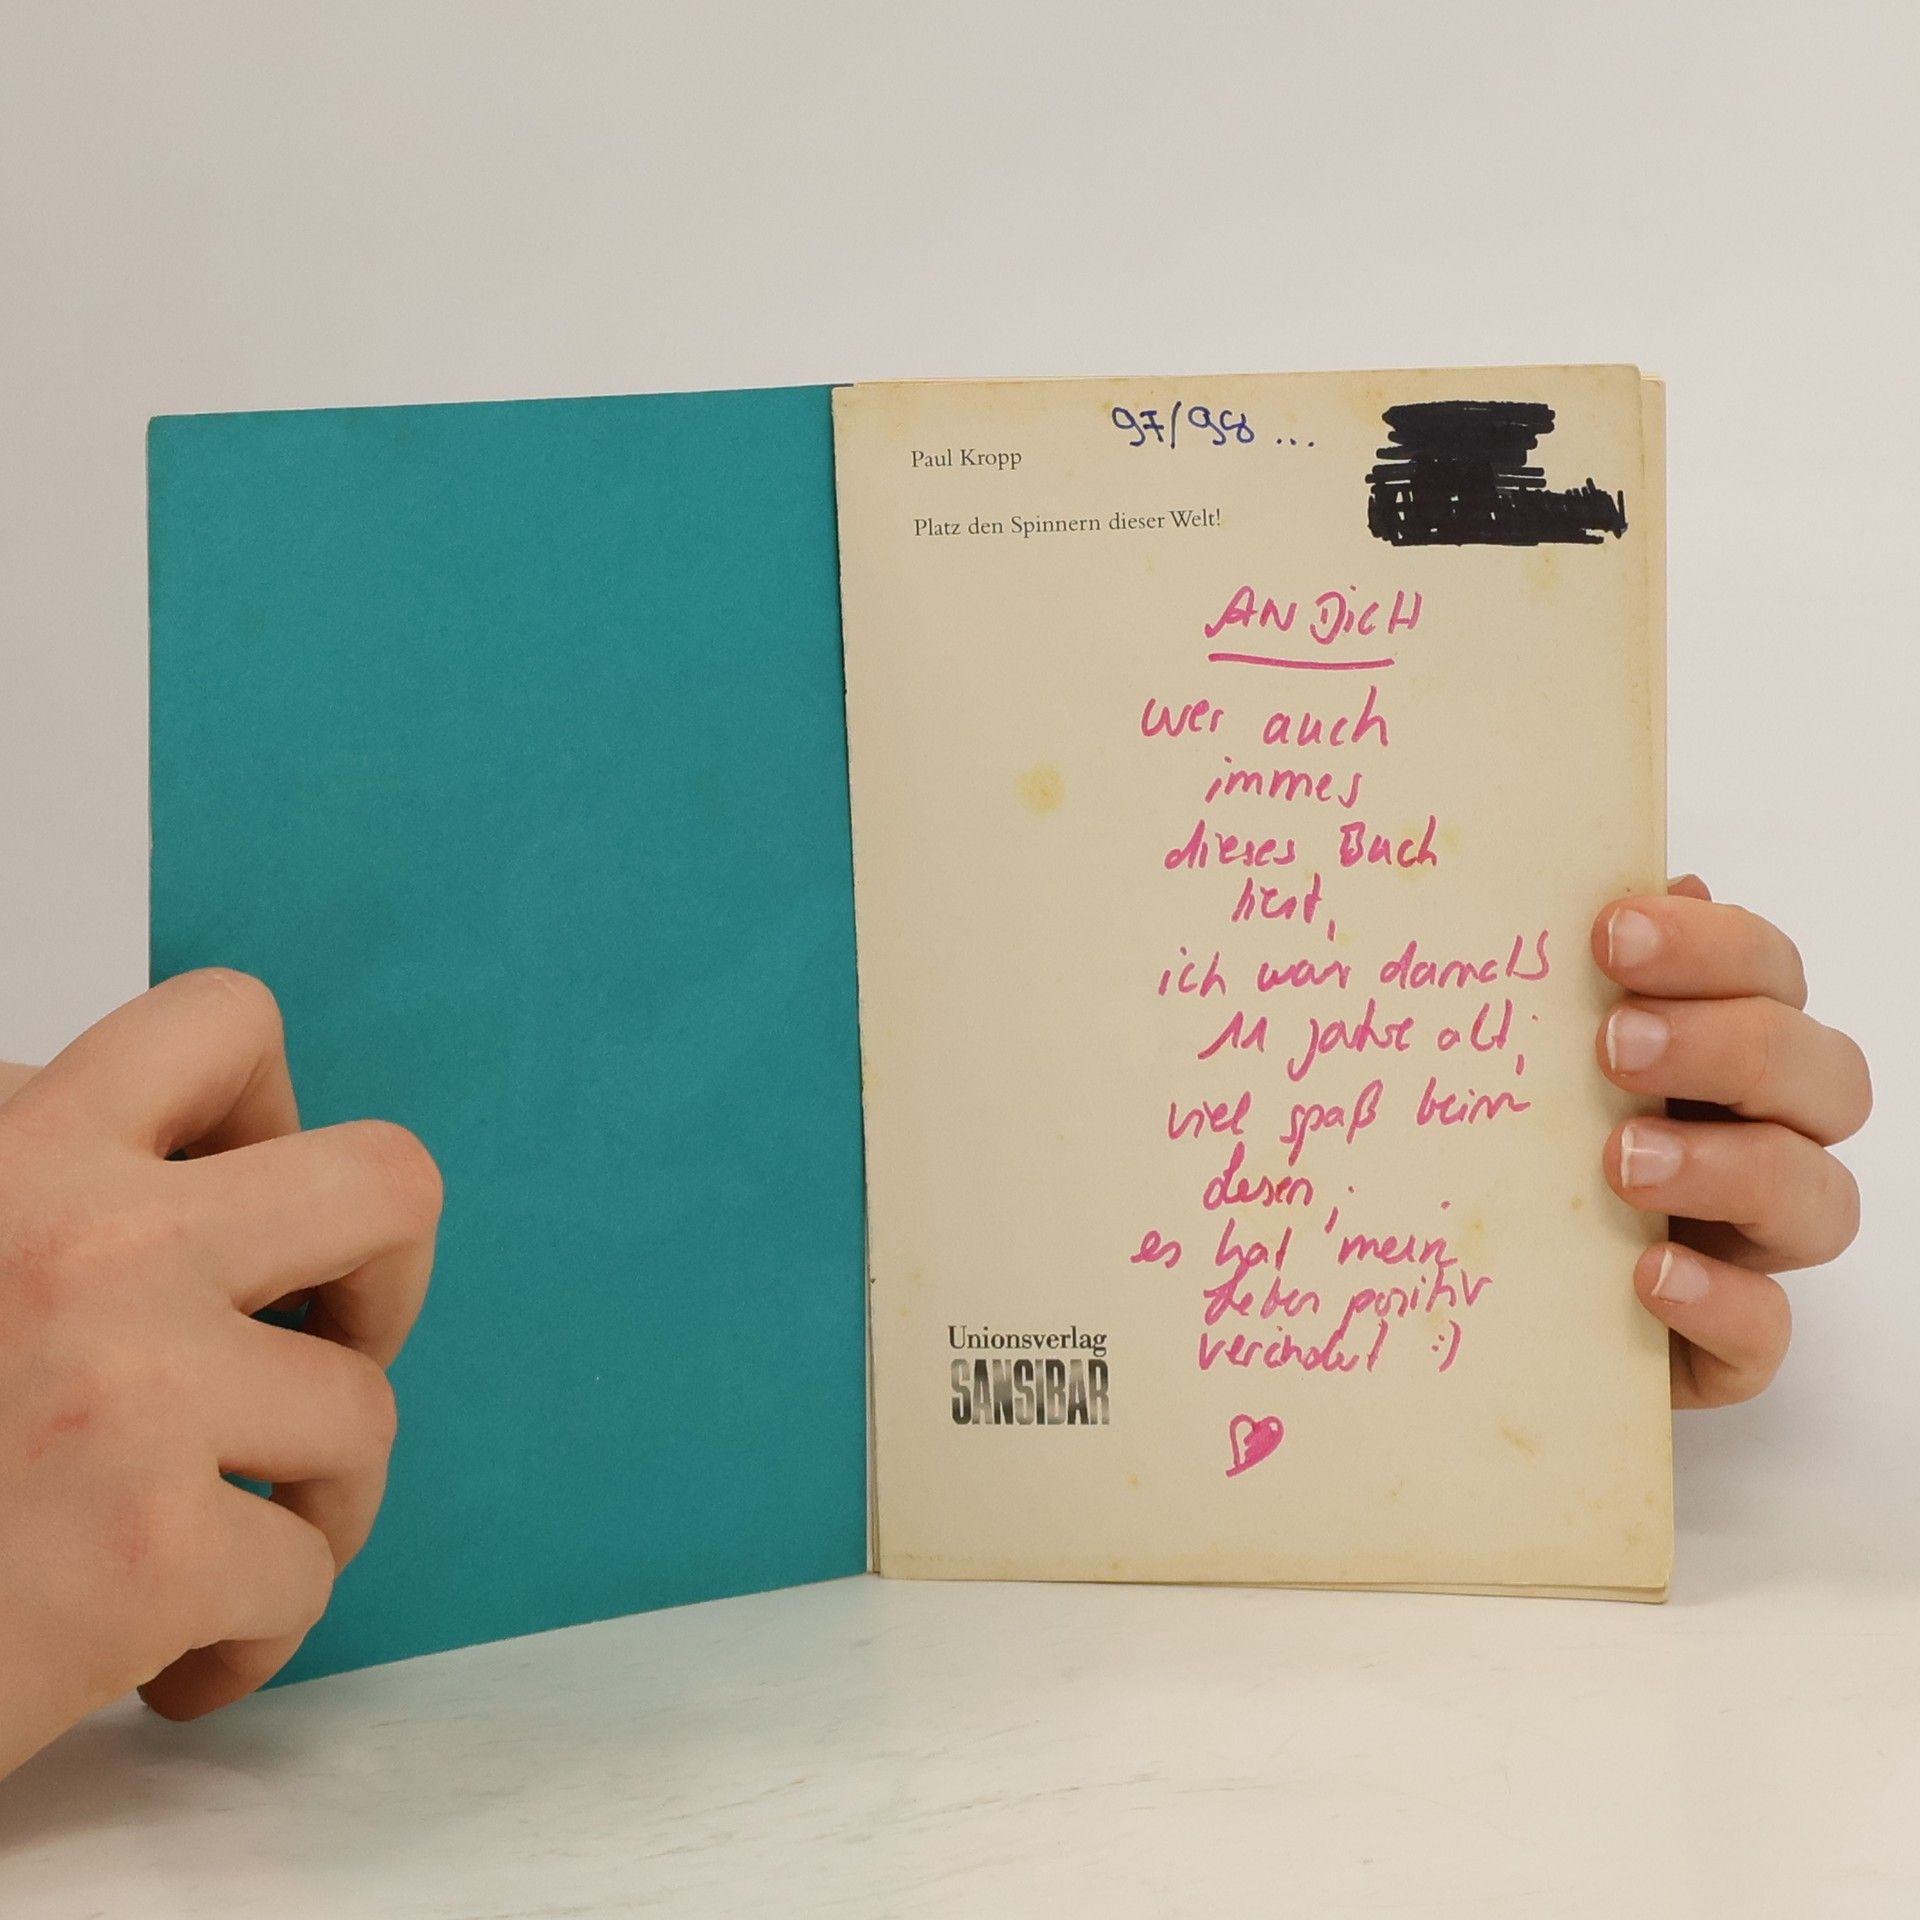 97/98 ...
Paul Kropp
Platz den Spinnern dieser Welt!
AN DICH
wer auch
immer
dieses Buch
liest,
ich war damals
11 Jahre alt;
viel spaß beim
Lesen;
es hat mein
Leben positiv
verändert :)
Unionsverlag
SANSIBAR